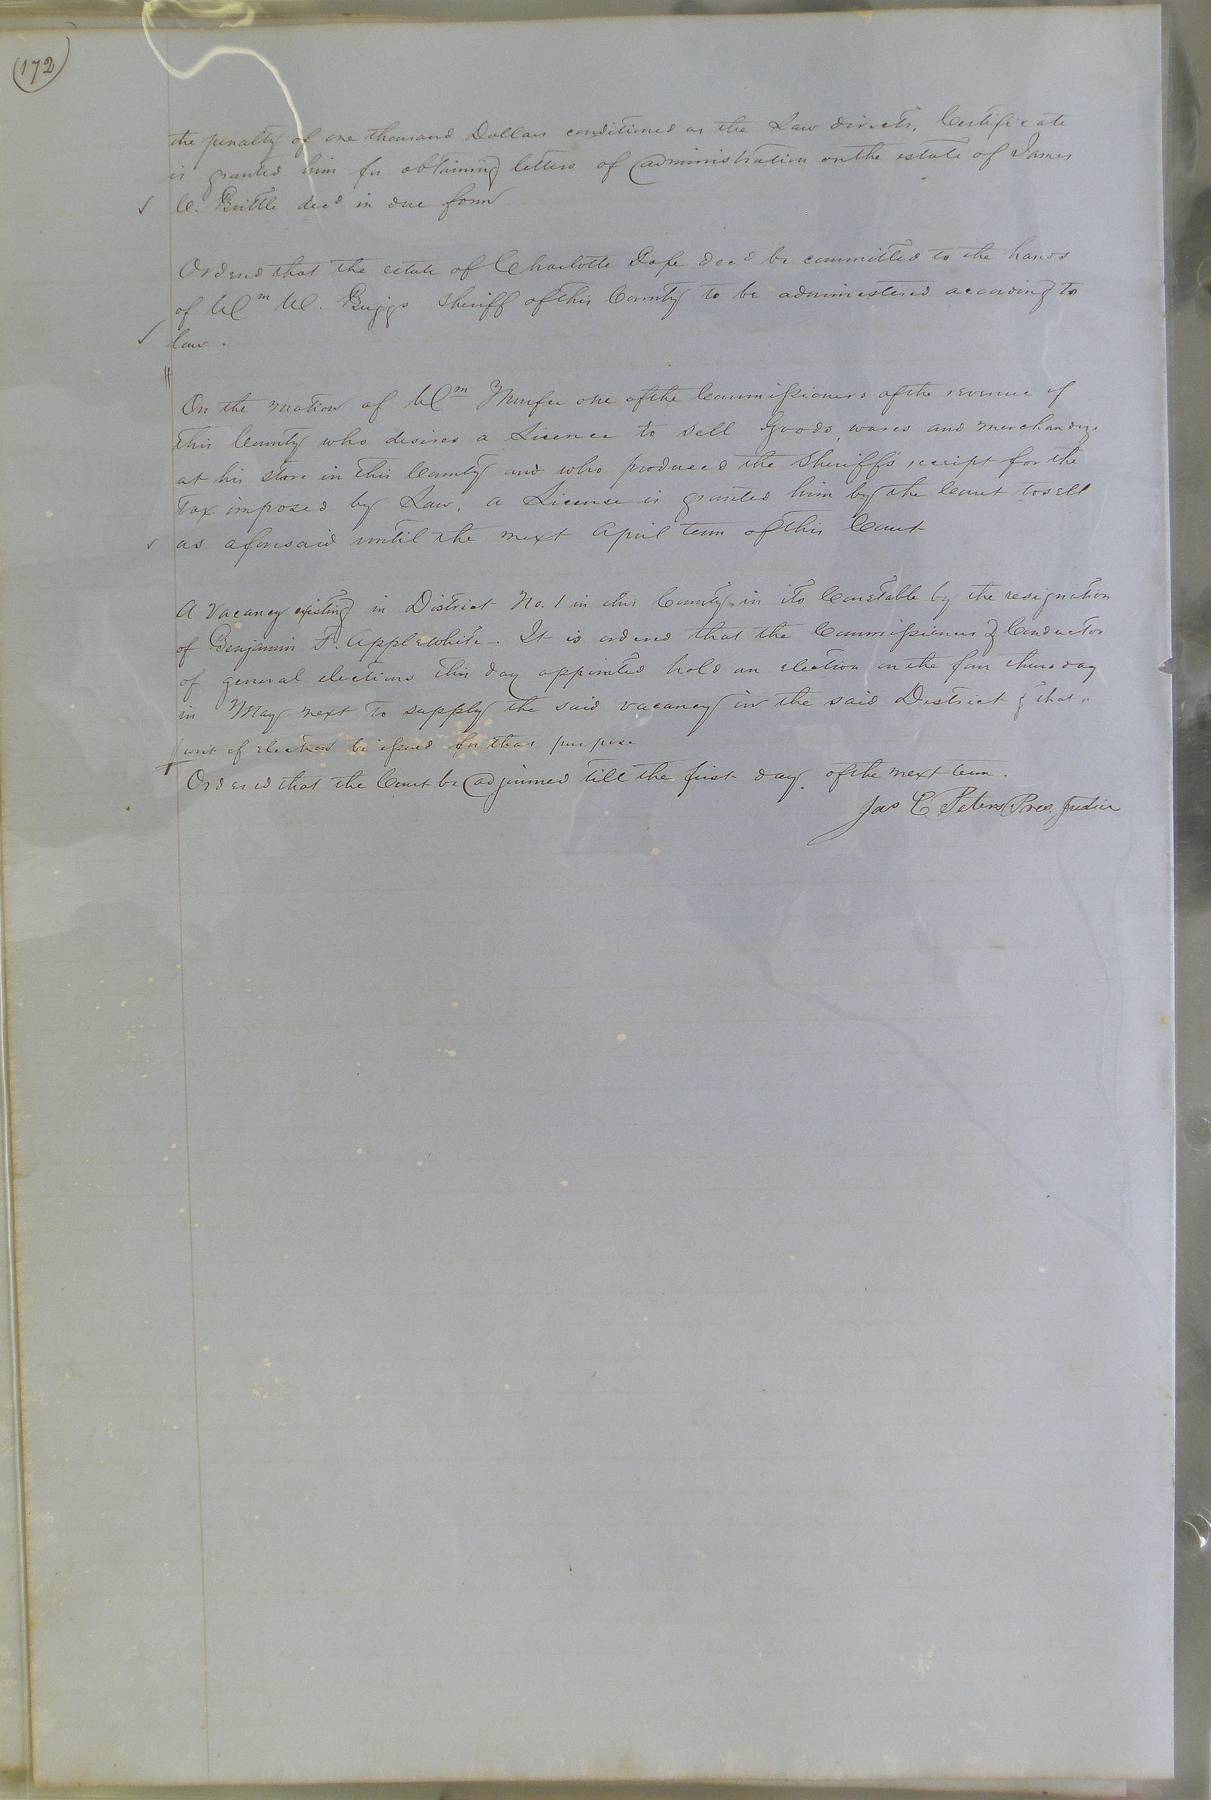 (172)
the penalty of one thousand Dollars conditioned as the Law directs, Certificate
is granted him for obtaining letters of administration on the estate of James
C. Brittle decd in due form
Ordered that the estate of Charlotte decd be committed to the hands
of Wm W. Briggs Sheriff of this County to be administered according to
law.
On the motion of Wm one of the Commissioners of the revenue of
this County who desires a Licence to sell Goods, wares and merchandize
at his store in this County and who produced the Sheriff's receipt for the
Tax imposed by Law, a License is granted him by the Court to sell
as aforesaid until the next April term of this Court
A Vacancy existing in District No. 1 in this County in its Constable by the resignation
of Benjamin F. Applewhite. It is ordered that the Commissioners & Conductor
of general elections this day appointed hold an election on the thursday
in May next to supply the said vacancy in the said District & that a
writ of election be issued for that purpose
Ordered that the Court be adjourned till the first day of the next term.
Jas C Peters Pres. Justice